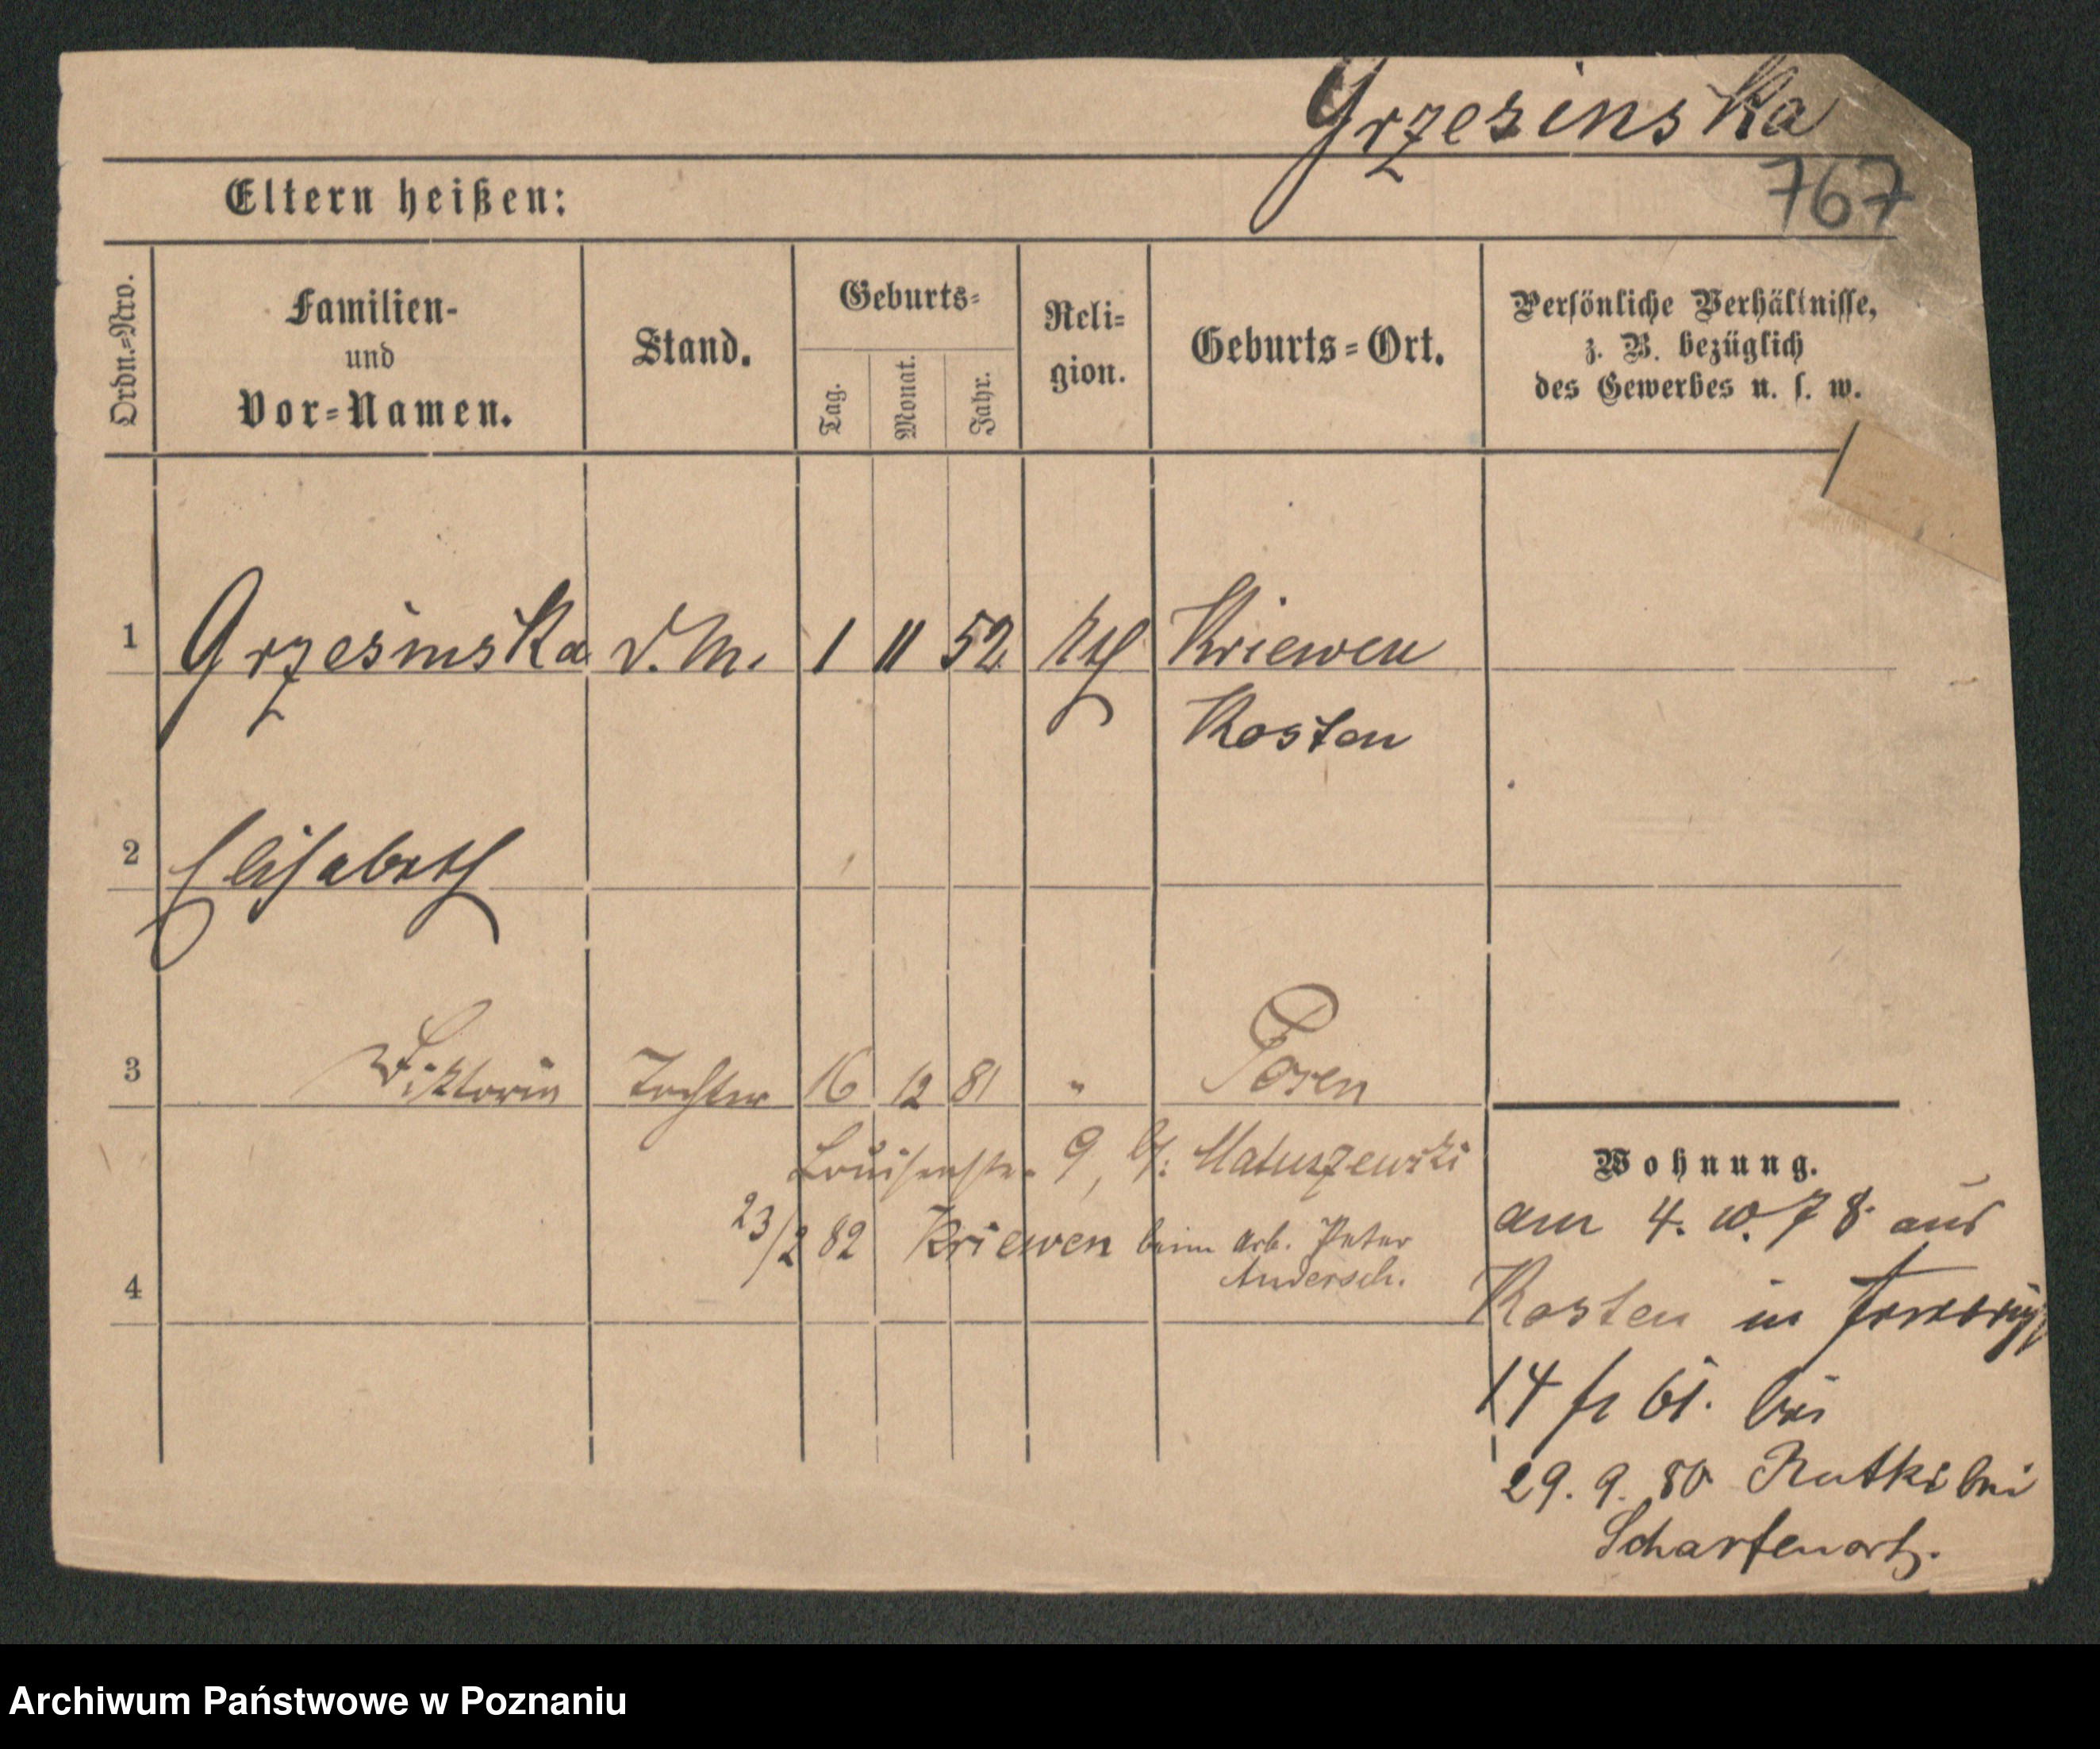 Grzesinska
767
Eltern heißen:
Ordn.=Nro.
Familien-
und
Vor=Namen.
Stand.
Geburts=
Tag.
Monat.
Jahr.
Reli=
gion.
Geburts=Ort.
Persönliche Verhältnisse,
z. B. bezüglich
des Gewerbes u. s. w.
1 Grzesinska d. M. 1 11 52 kth Kriewen
Kosten
2 Elisabeth
3 Viktoria Tochter 16 12 81 " Posen
Louisenstr. 9, b/: Matuszewski
23/2 82 Kriewen beim Arb. Peter
Andersch.
4
Wohnung.
am 4. 10. 78 aus
Kosten in
14 bei
29. 9. 80 Rutki bei
Scharfenort.
Archiwum Państwowe w Poznaniu